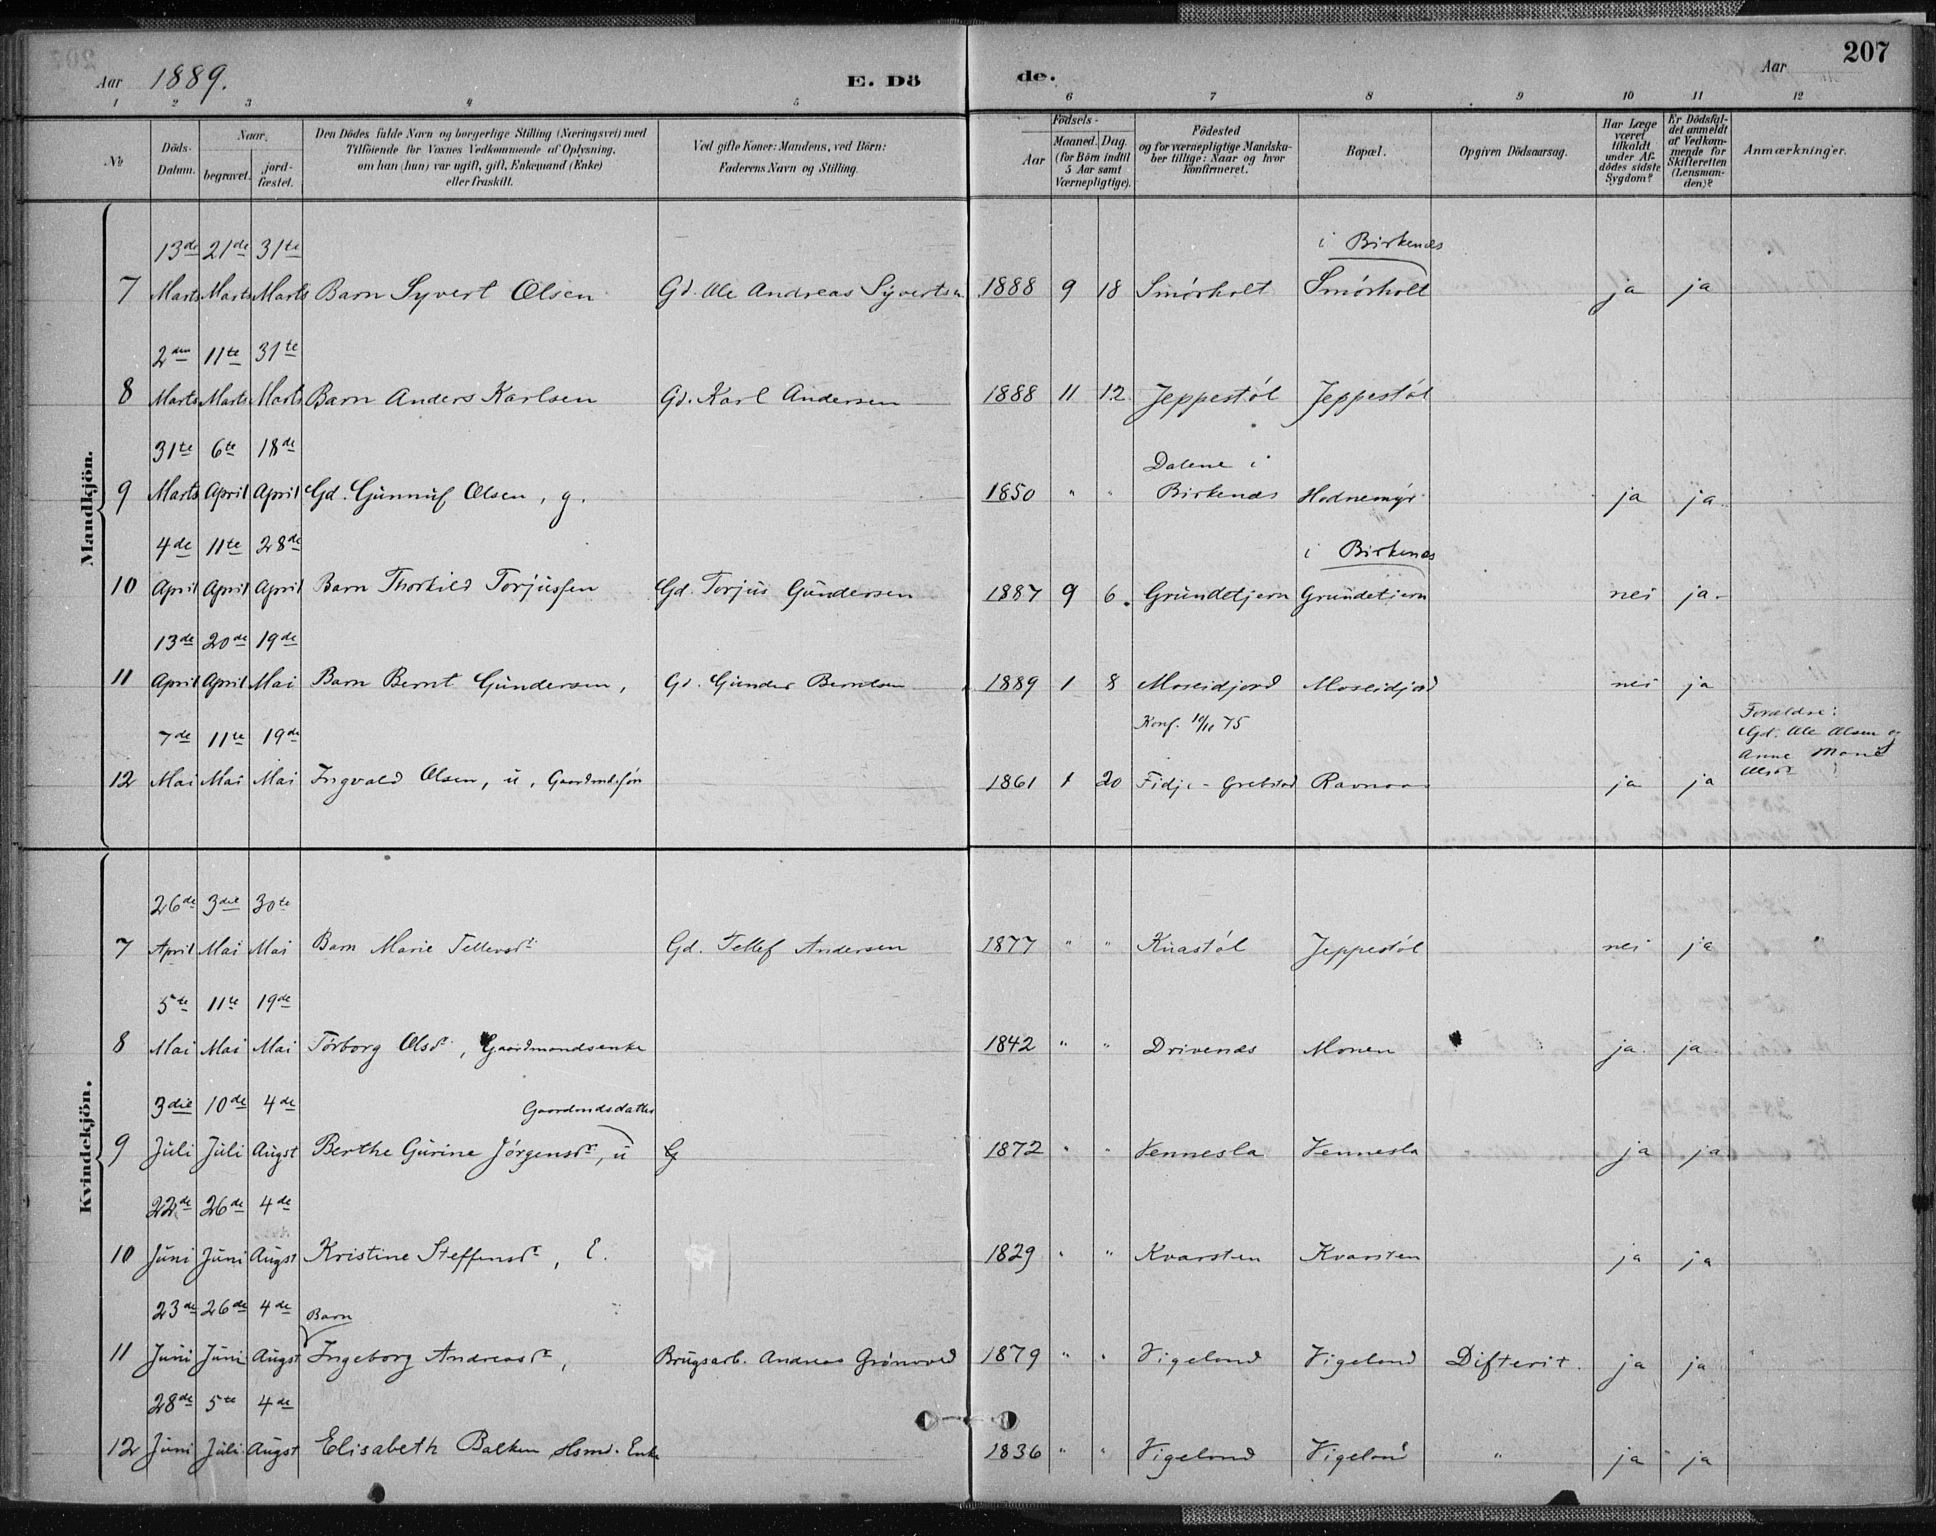 207
Aar 1889. E. Döde. Aar
1 2 3 4 5 6 7 8 9 10 11 12
№
Döds-Datum.
Naar.
begravet.
jord-fæstet.
Den Dödes fulde Navn og borgerlige Stilling (Næringsvei) med
Tilföiende for Voxnes Vedkommende af Oplysning,
om han (hun) var ugift, gift, Enkemand (Enke)
eller fraskilt.
Ved gifte Koner: Mandens, ved Börn:
Faderens Navn og Stilling.
Födsels-
Aar
Maaned. Dag
(for Börn indtil
5 Aar samt
Værnepligtige).
Födested
og for værnepligtige Mandska-
ber tillige: Naar og hvor
konfirmeret.
Bopæl.
Opgiven Dödsaarsag.
Har Læge
været
tilkaldt
under Af-
dödes sidste
Sygdom?
Er Dödsfal-
det anmeldt
af Vedkom-
mende for
Skifteretten
(Lensman-
den)?
Anmærkninger.
Mandkjön.
13de 21de 31te i Birkenæs
7 Marts Marts Marts Barn Syvert Olsen Gd. Ole Andreas Syvertsen 1888 9 18 Smörholt Smörholt ja ja
2den 11te 31te
8 Marts Marts Marts Barn Anders Karlsen Gd. Karl Andersen 1888 11 12 Jeppestöl Jeppestöl
31te 6te 18de Dalene i
9 Marts April April Gd. Gunnuf Olsen, g. 1850 " " Birkenæs Hodnemyr ja ja.
4de 11te 28de i Birkenæs
10 April April April Barn Thorkild Torjussen Gd. Torjus Gundersen 1887 9 6. Grundetjern Grundetjern nei ja.
13de 20de 19de
11 April April Mai Barn Bernt Gundersen, Gd. Gunder Berntsen 1889 1 8 Moseidjord Moseidjord nei ja
7de 11te 19de Konf. 75 Forældre:
Gd. Ole Olsen og
Anne
12 Mai Mai Mai Ingvald Olsen, u, 1861 1 20 Fidje - ja ja
Kvindekjön.
26de 3die 30te
7 April Mai Mai Barn Marie Tellevsdr Gd. Tellef Andersen 1877 " " Knastöl Jeppestöl nei ja
5te 11te 19de
8 Mai Mai Mai Torborg Olsdr, Gaardmandsenke 1842 " " Drivenæs Monen ja. ja.
3die 10de 4de Gaardmdsdatter
9 Juli Juli Augst Berthe Gurine Jörgensdr, u G 1872 " " Vennesla Vennesla ja ja
22de 26de 4de
10 Juni Juni Augst Kristine Steffensdr, E. 1829 " " Kvarsten Kvarsten ja ja
23de 26de 4de Barn
11 Juni Juni Augst Ingeborg Andreasdr, Brugsarb. Andreas 1879 " " Vigeland Vigeland Difterit. ja ja
28de 5te 4de
12 Juni Juli Augst Elisabeth Balken Hsmd. Enke 1836 " " Vigeland Vigeland " ja ja